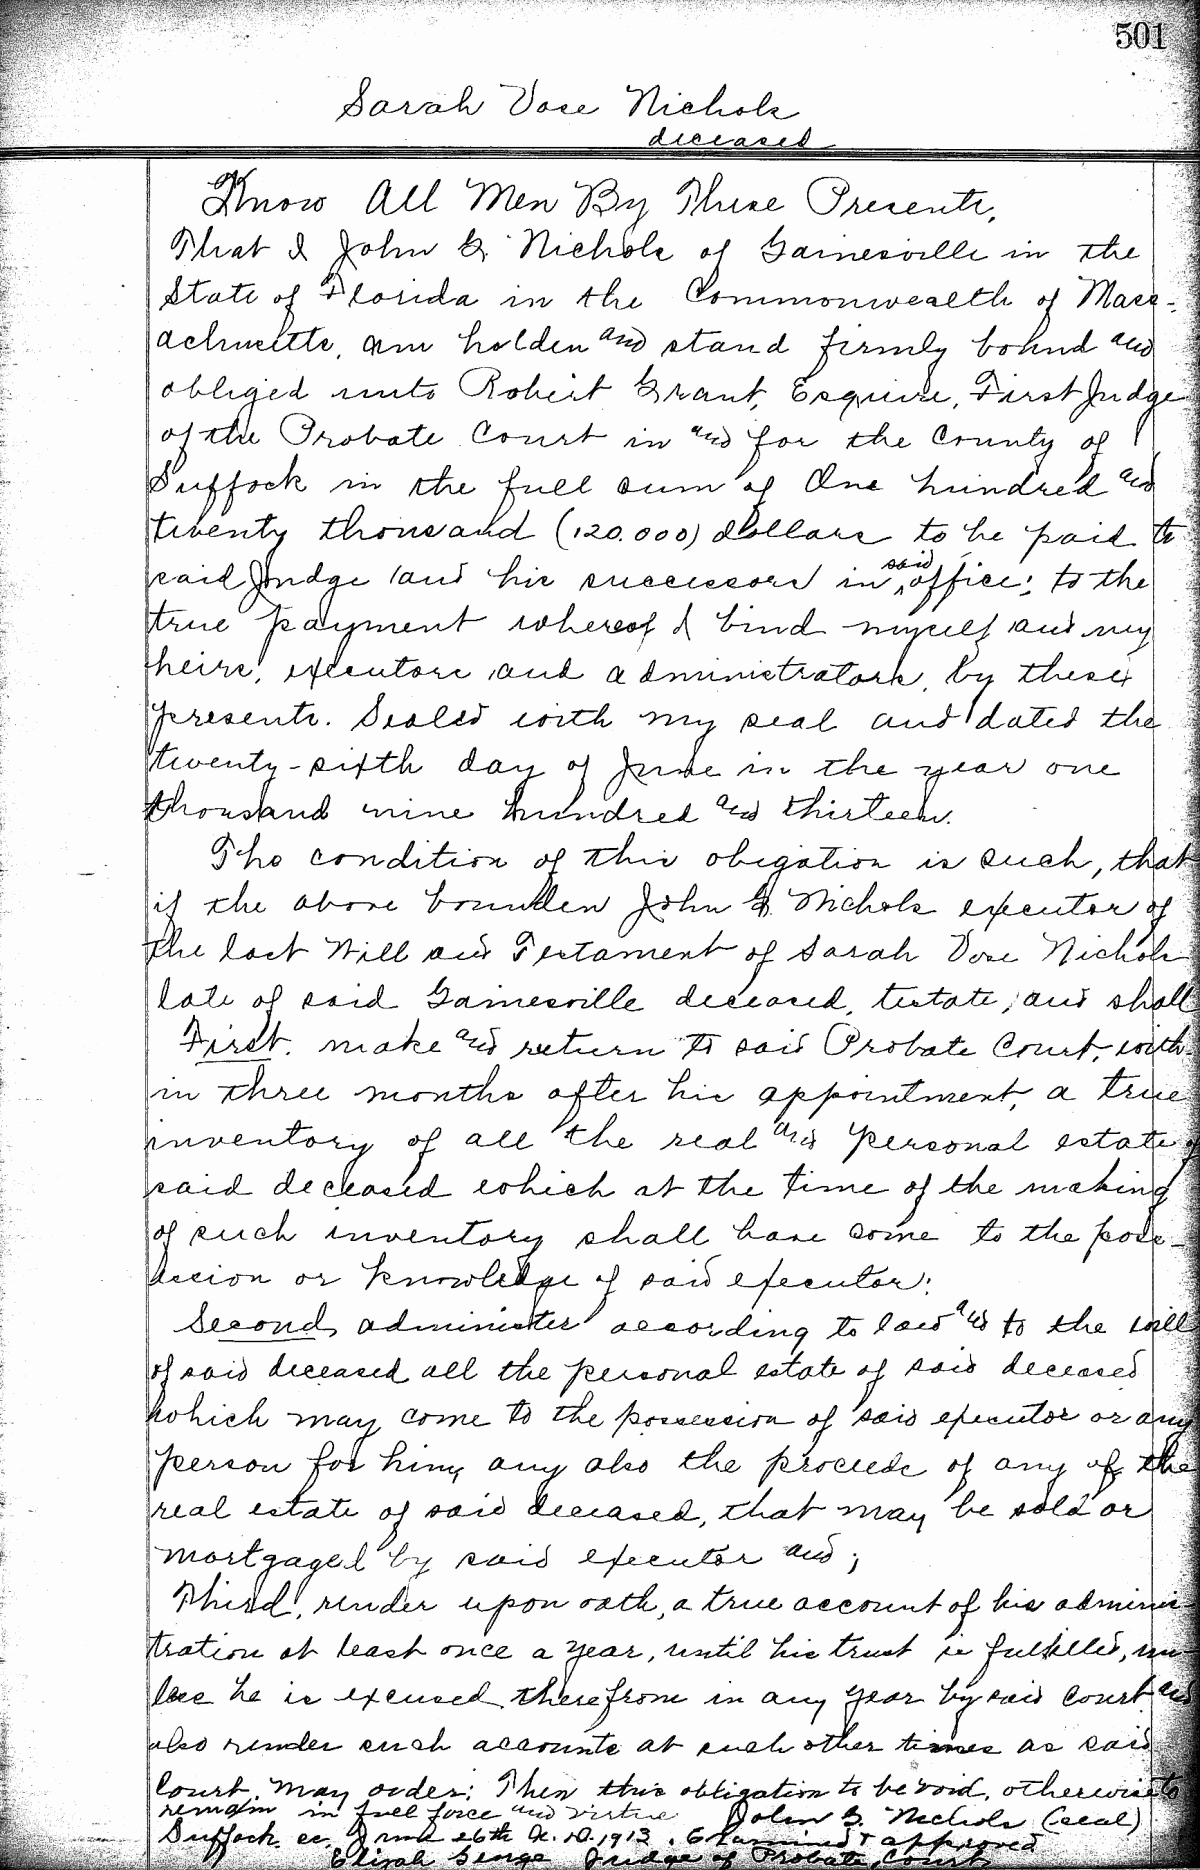 501
Sarah Vose Nichols
deceased
Know All Men By These Presents,
That I John G. Nichols of Gainesville in the
State of Florida in the Commonwealth of Mass-
achusetts, am holden and stand firmly bound and
obliged unto Robert Grant, Esquire, First Judge
of the Probate Court in and for the County of
Suffock in the full sum of One hundred and
twenty thousand (120.000) dollars to be paid to
said Judge and his successors in said office; to the
true payment whereof I bind myself and my
heirs, executors and administrators, by these
presents. Sealed with my seal and dated the
twenty-sixth day of June in the year one
thousand nine hundred and thirteen.
The condition of this obigation is such, that
if the above bounden John G. Nichols executor of
the last Will and Testament of Sarah Vose Nichols
late of said Gainesville deceased, testate, and shall
First. make and return to said Probate Court, with-
in three months after his appointment, a true
inventory of all the real and personal estate of
said deceased which at the time of the making
of such inventory shall have come to the poss-
ession or knowledge of said executor:
Second, administer according to law and to the will
of said deceased all the personal estate of said deceased
which may come to the possession of said executor or any
person for him, any also the proceeds of any of the
real estate of said deceased, that may be sold or
mortgaged by said executor and;
Third, render upon oath, a true account of his adminis-
tration at least once a year, until his trust is fulfilled, un-
less he is excused therefrom in any year by said court and
also render such accounts at such other times as said
Court may order: Then this obligation to be void, otherwise to
remain in full force and virtue John G. Nichols (seal)
Suffock ss. June 26th A.D. 1913. Examined & approved
Elijah George Judge of Probate Court